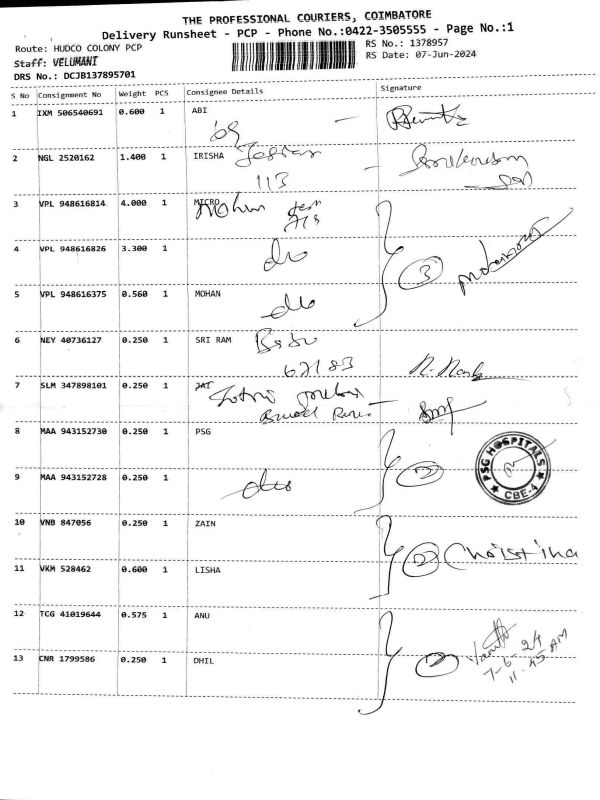 THE PROFESSIONAL COURIERS, COIMBATORE
Delivery Runsheet - PCP - Phone No.:0422-3505555 - Page No.:1
Route: HUDCO COLONY PCP
RS No.: 1378957
Staff: VELUMANI
RS Date: 07-Jun-2024
DRS No.: DCJB137895701
S No Consignment No Weight PCS Consignee Details Signature
1 IXM 506540691 0.600 1 ABI
2 NGL 2520162 1.400 1 IRISHA
113
3 VPL 948616814 4.000 1 MICRO
Mohan
4 VPL 948616826 3.300 1
do
3
5 VPL 948616375 0.560 1 MOHAN
do
6 NEY 40736127 0.250 1 SRI RAM
Babu
67183
7 SLM 347898101 0.250 1 JAI
8 MAA 943152730 0.250 1 PSG
2
PSG HOSPITALS
CBE-4
9 MAA 943152728 0.250 1
do
10 VNB 847056 0.250 1 ZAIN
2 Christina
11 VKM 528462 0.600 1 LISHA
12 TCG 41019644 0.575 1 ANU
13 CNR 1799586 0.250 1 DHIL
2
7-6-24
11.45 AM